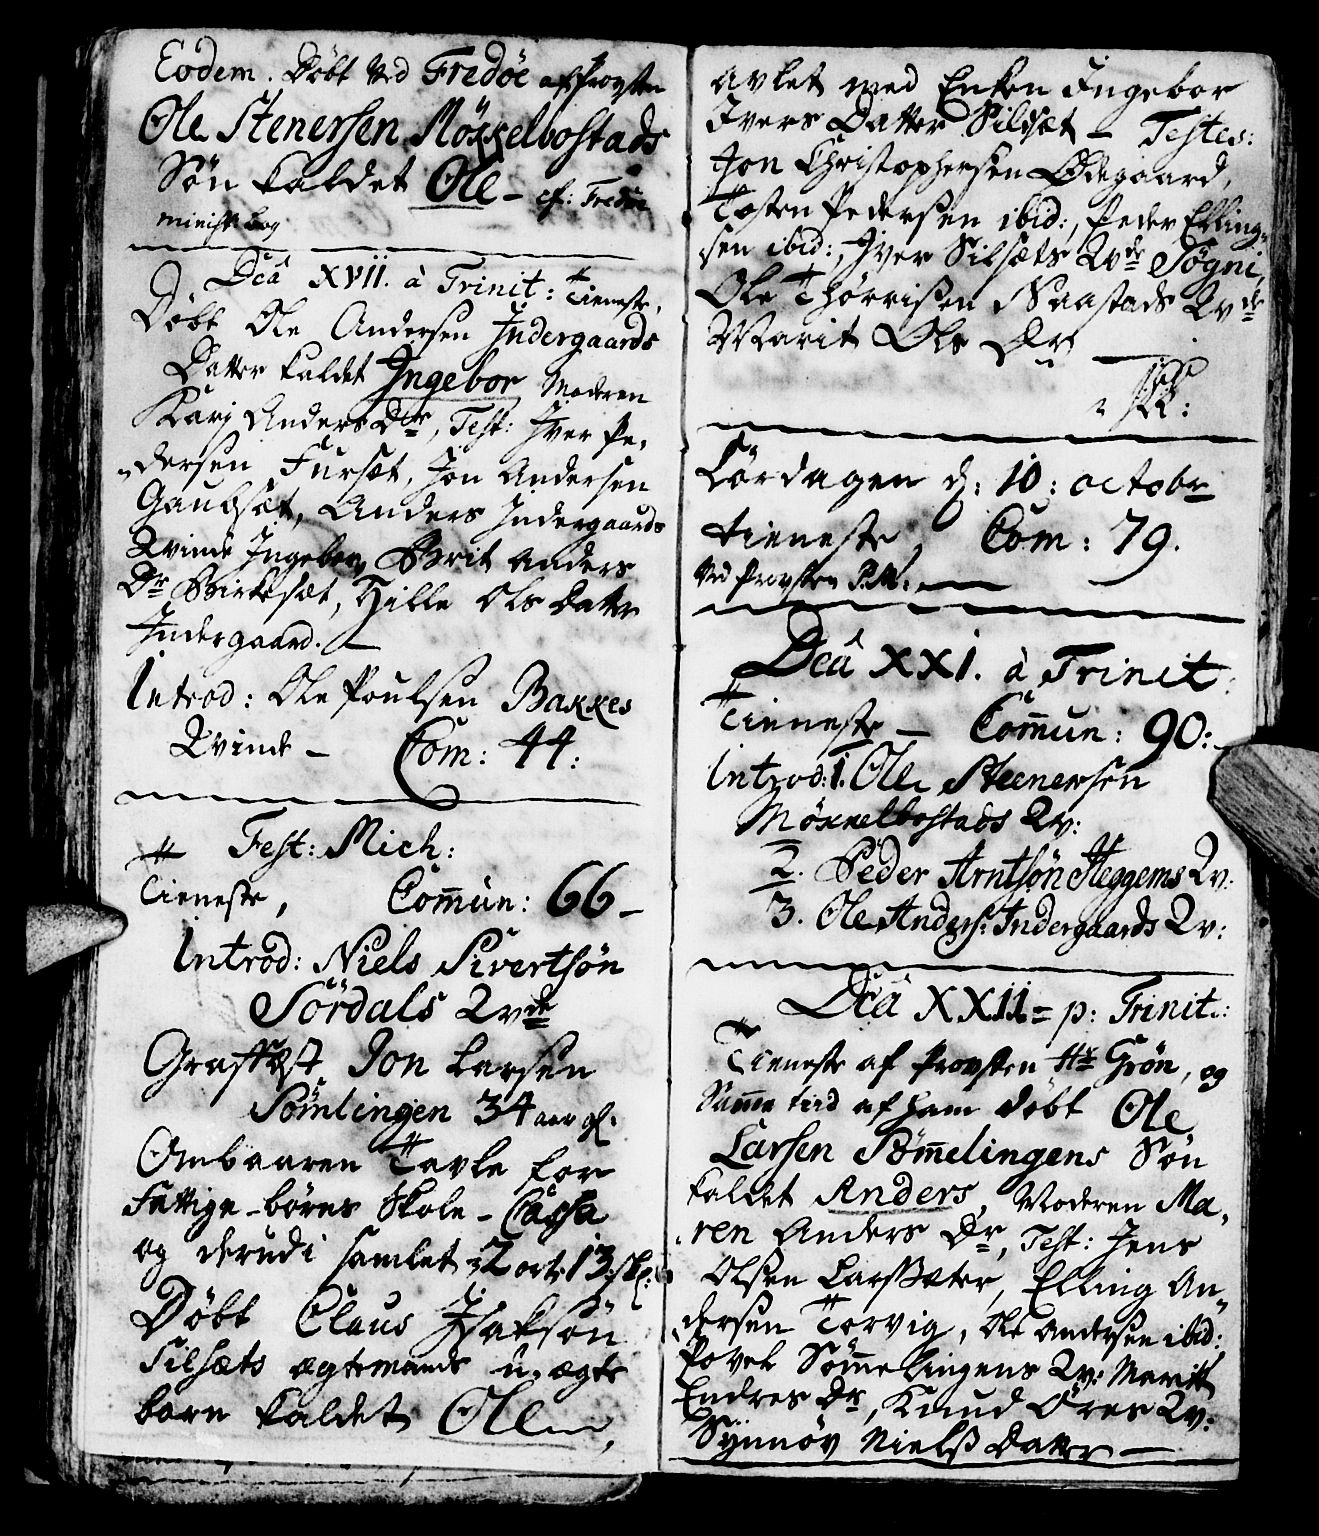 Eodem. Döbt ved Fredöe af Provsten
Ole Stenersen Möxkelbostads
Søn kaldet Ole – cf: Fredöe
minist bog
Dcâ XVII. à Trinit: Tieneste,
Döbt Ole Andersen Indergaards
Datter kaldet Ingebor Moderen
Kari Anders Dtr, Test: Iver Pe-
dersen Fursæt, Jon Andersen
Gaudset, Anders Indergaards
Qvinde Ingebor, Brit Anders
Dr Birkesæt, Hille Ols Datter
Indergaard. –
Introd: Ole Poulsen Bakkes
Qvinde – Com: 44:
Fest: Mich:
Tieneste, Com̄un: 66 –
Introd: Niels Sivertsön
Sördals Qvde
Graffæst Jon Larsen
Sömlingen 34 aar gl.
Ombaaren Tavle for
Fattige-börns Skole-Cassa
og derudi samlet 2 ort 13 sk:
Döbt Claus Isaksön
Silsæts ægtemands u-ægte
barn kaldet Ole,
avlet med Enken Ingebor
Ivers Datter Silsæt – Testes:
Jon Christophersen Ødegaard,
Tosten Pedersen ibid:, Peder Elling-
sen ibid:, Iver Silsæts Qvde Sögni,
Ole Thørrisen Naastads Qvde
Marit Ols Dr –
Lördagen d: 10: octobr
tieneste, Com: 79.
ved Provsten
Dcâ XXI. à Trinit:
Tieneste – Com̄un: 90: –
Introd: 1. Ole Steenersen
Möxkelbostads Qv:
2. Peder Arntsön Heggems Qv:
3. Ole Anders: Indergaards Qv:
Dcâ XXII = p: Trinit:
Tieneste af Provsten Hr Grön, og
Sam̄e tiid af ham döbt Ole
Larsen Söm̄elingens Sön
kaldet Anders, Moderen Ma-
ren Anders Dr, Test: Jens
Olsen Larssæter, Elling An-
dersen Torvig, Ole Andersen ibid:
Povel Söm̄elingens Qv: Maritt
Endres Dr, Knud Öres Qv:
Synnöv Nielss Datter –